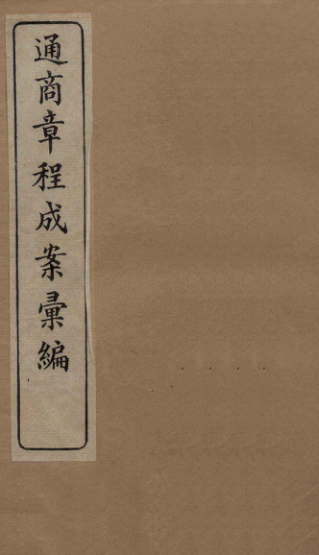 通商章程成案彙編